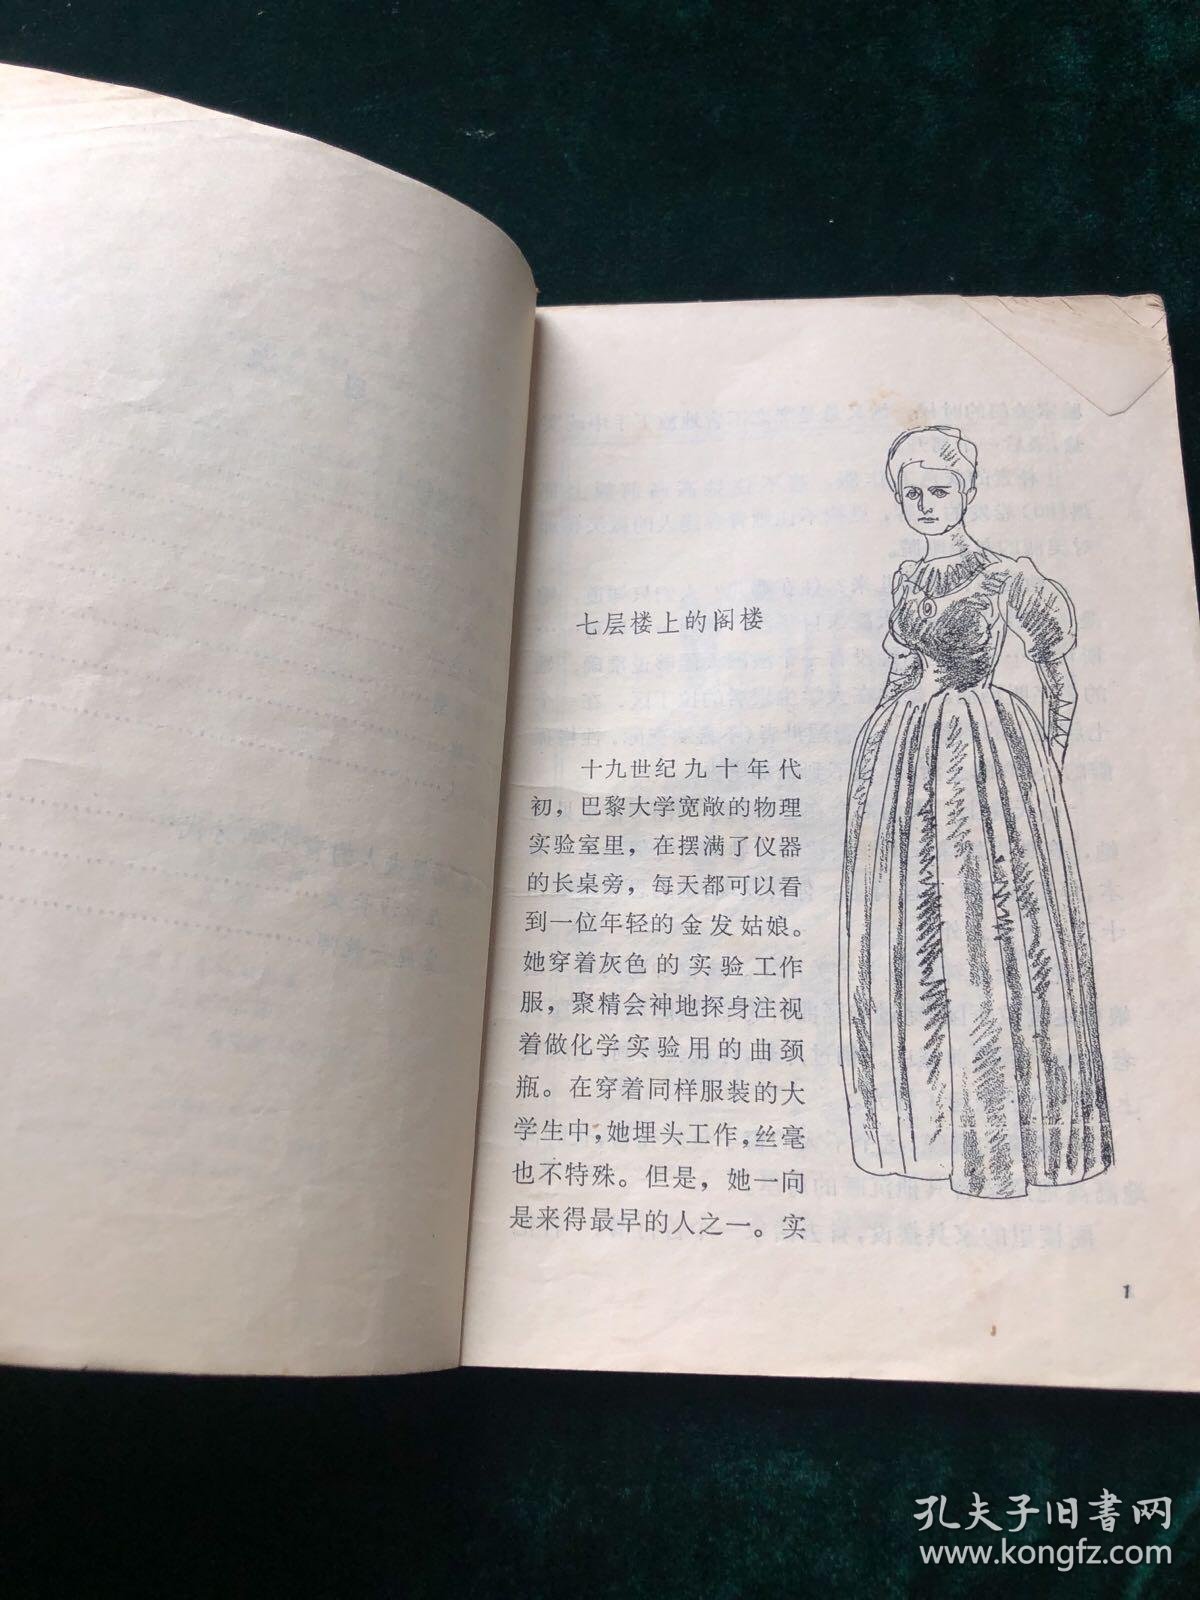 七层楼上的阁楼
十九世纪九十年代
初，巴黎大学宽敞的物理
实验室里，在摆满了仪器
的长桌旁，每天都可以看
到一位年轻的金发姑娘。
她穿着灰色的实验工作
服，聚精会神地探身注视
着做化学实验用的曲颈
瓶。在穿着同样服装的大
学生中，她埋头工作，丝毫
也不特殊。但是，她一向
是来得最早的人之一。实
1
孔夫子旧书网
www.kongfz.com